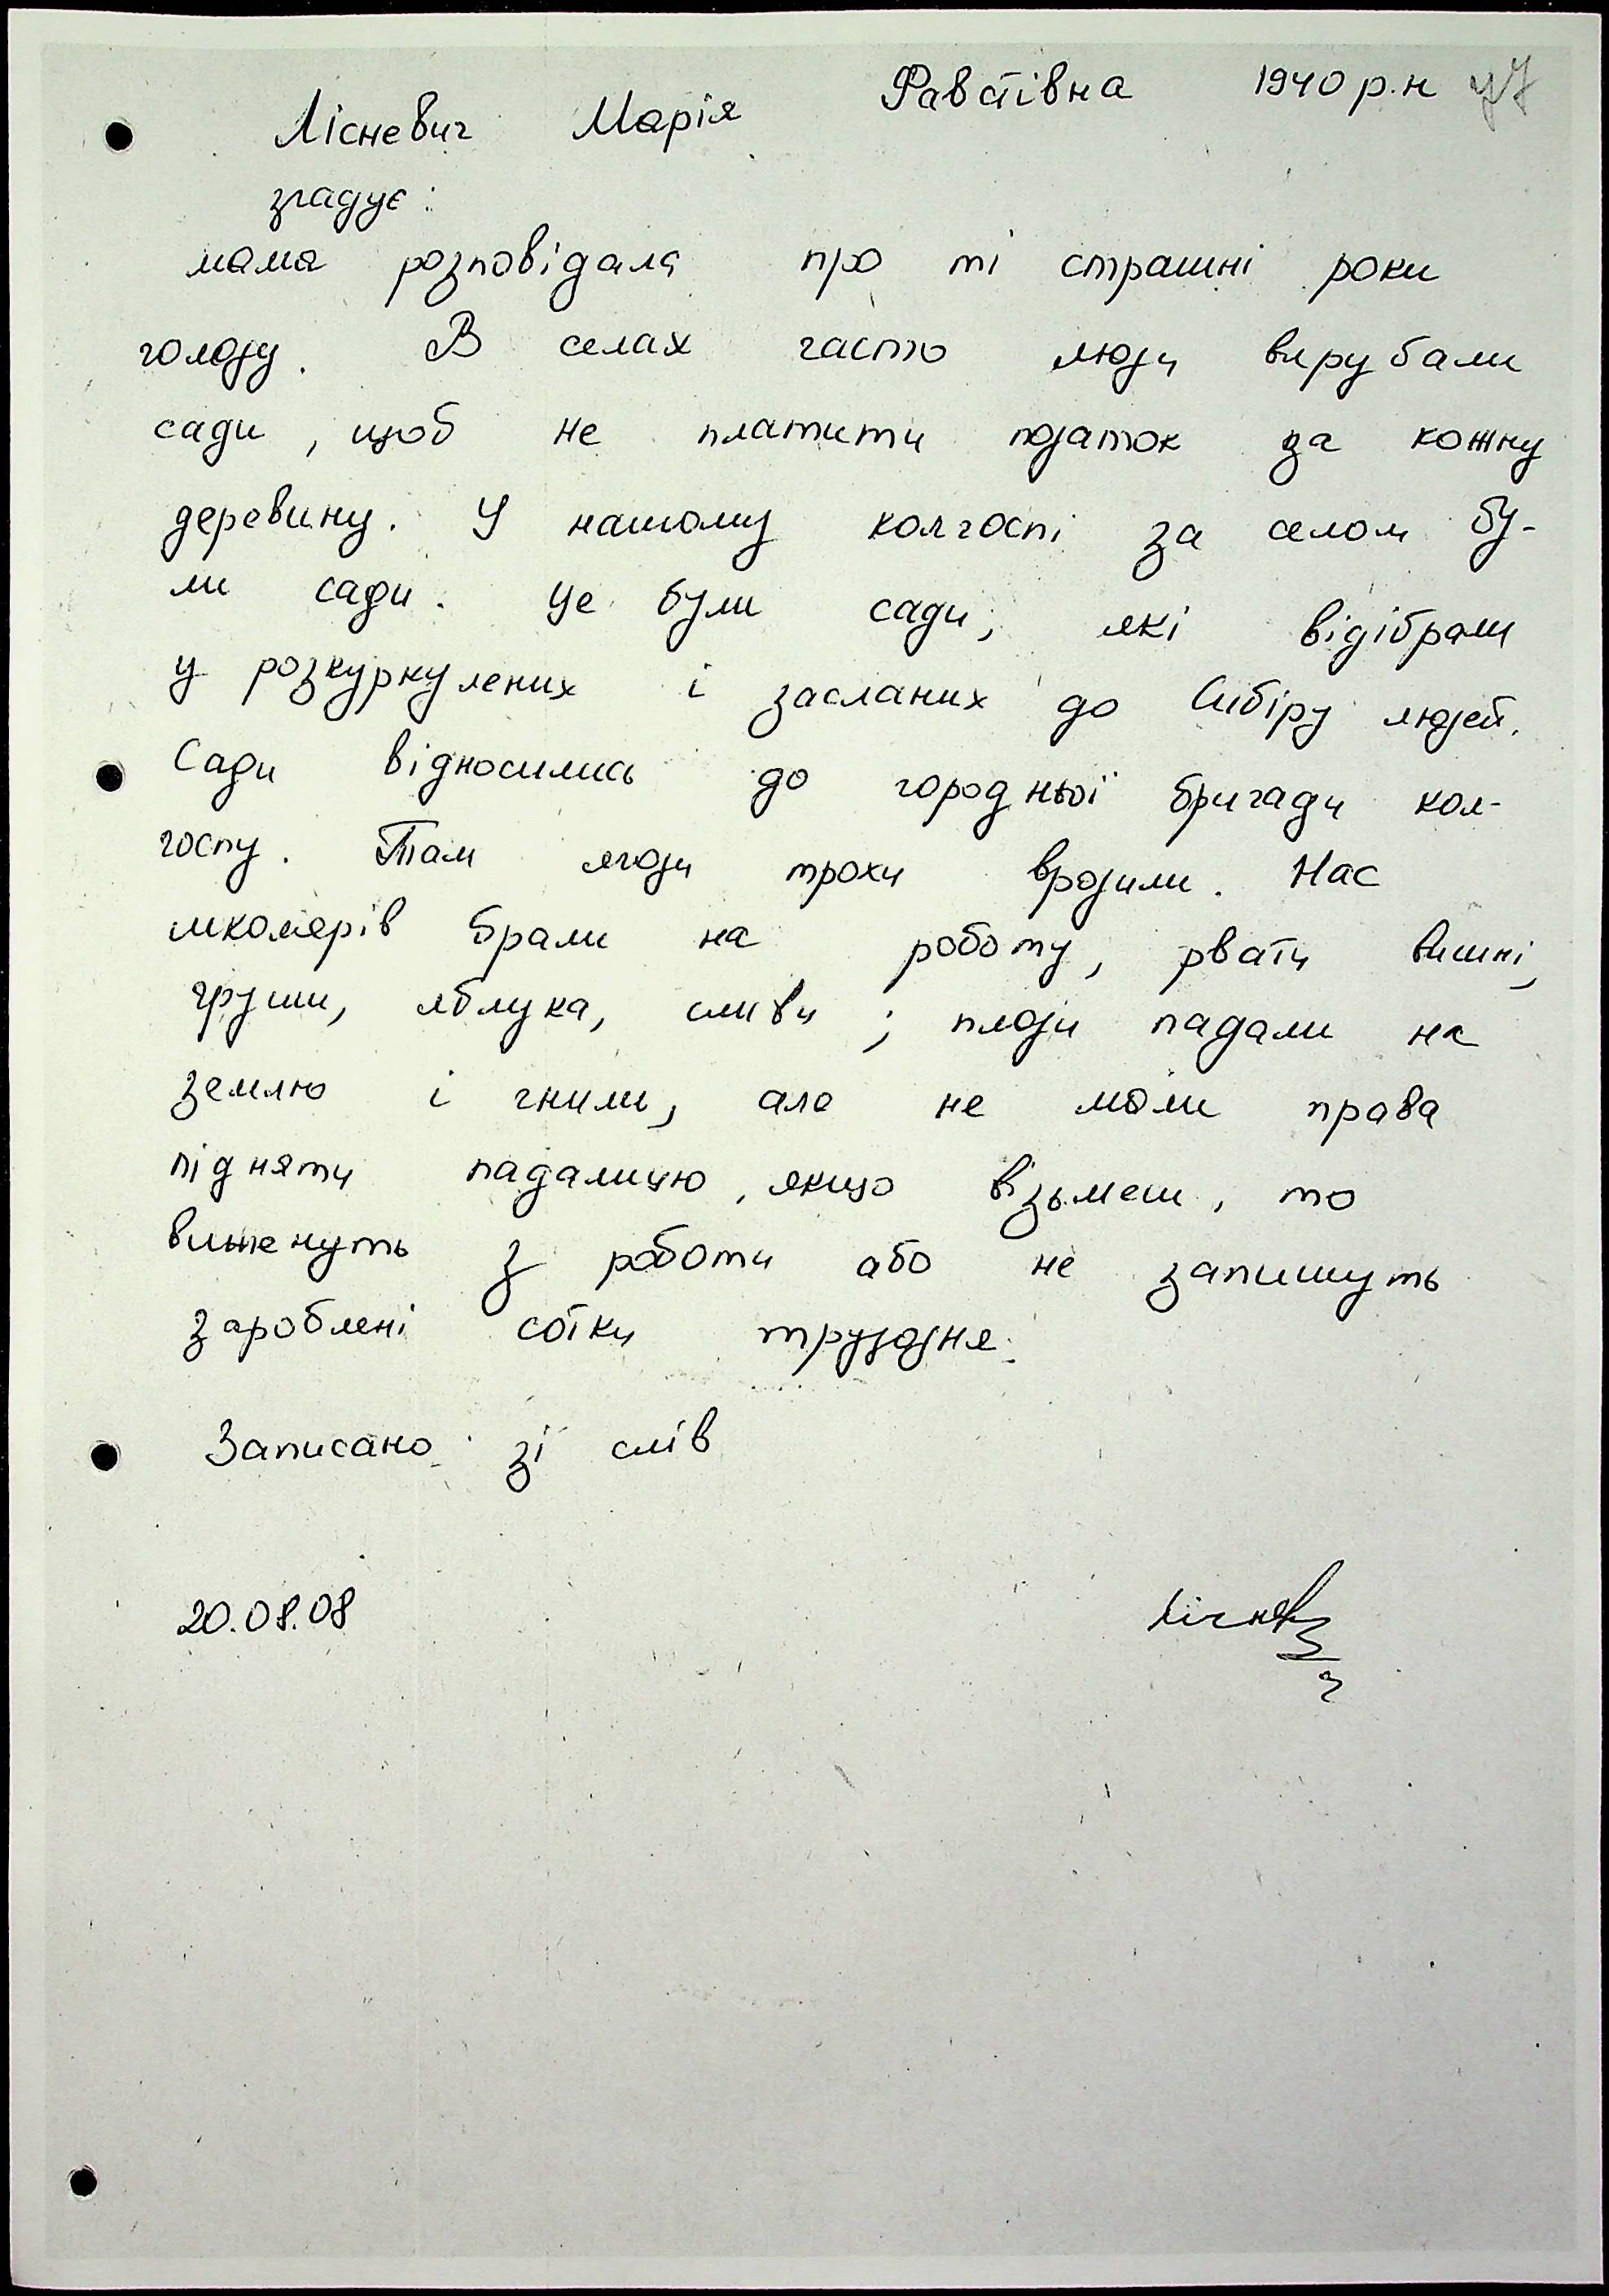 Лісневич Марія Фавстівна 1940 р.н 47
згадує:
мама розповідала про ті страшні роки
голоду. В селах часто люди вирубали
сади, щоб не платити податок за кожну
деревину. У нашому колгоспі за селом бу-
ли сади. Це були сади, які відібрали
у розкуркулених і засланих до Сибіру людей.
Сади відносились до городньої бригади кол-
госпу. Там ягоди трохи вродили. Нас
школярів брали на роботу, рвати вишні,
груши, яблука, сливи; плоди падали на
землю і гнили, але не мали права
підняти падалицю, якщо візьмеш, то
виженуть з роботи або не запишуть
зароблені сотки трудодня.
Записано зі слів
20.08.08